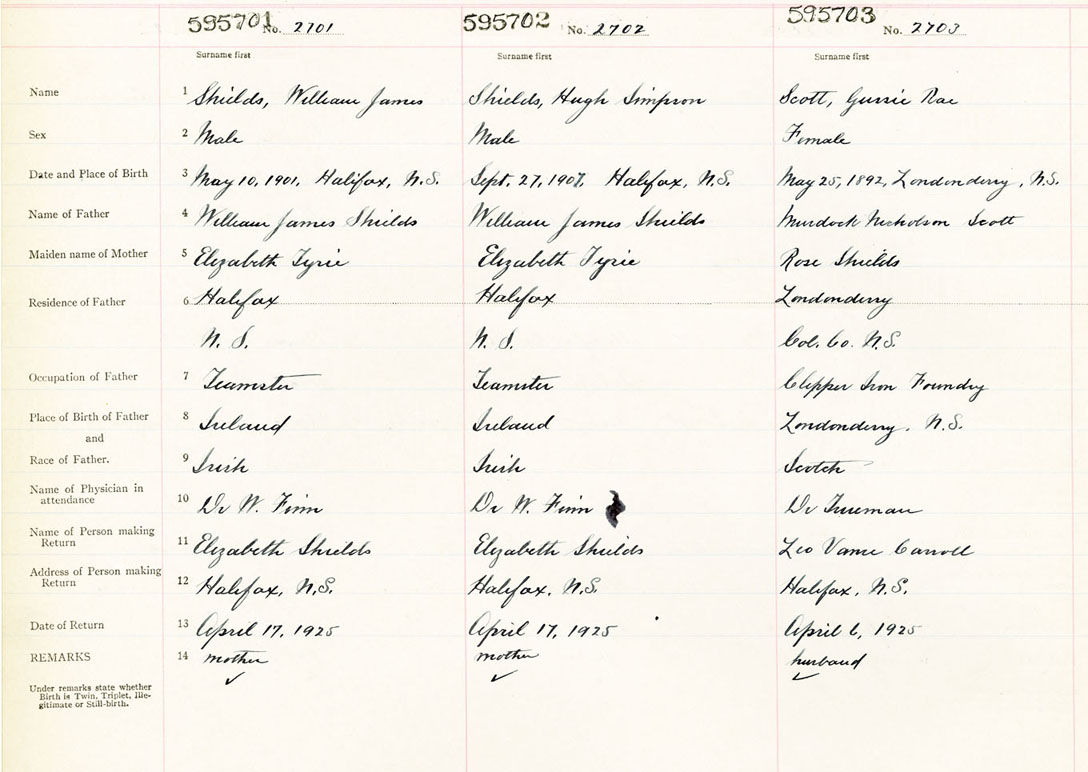 595701 No. 2701 595702 No. 2702 595703 No. 2703
Surname first Surname first Surname first
Name 1 Shields, William James Shields, Hugh Simpson Scott, Gussie Rae
Sex 2 Male Male Female
Date and Place of Birth 3 May 10, 1901, Halifax, N.S. Sept. 27, 1907, Halifax, N.S. May 25, 1892, Londonderry, N.S.
Name of Father 4 William James Shields William James Shields Murdock Nicholson Scott
Maiden name of Mother 5 Elizabeth Tyrie Elizabeth Tyrie Rose Shields
Residence of Father 6 Halifax Halifax Londonderry
N. S. N. S. Col. Co. N.S.
Occupation of Father 7 Teamster Teamster Clipper Iron Foundry
Place of Birth of Father 8 Ireland Ireland Londonderry, N.S.
and
Race of Father. 9 Irish Irish Scotch
Name of Physician in
attendance 10 Dr W. Finn Dr W. Finn Dr
Name of Person making
Return 11 Elizabeth Shields Elizabeth Shields Leo Vance Carroll
Address of Person making
Return 12 Halifax, N.S. Halifax, N.S. Halifax, N.S.
Date of Return 13 April 17, 1925 April 17, 1925 April 6, 1925
REMARKS 14 mother mother husband
Under remarks state whether
Birth is Twin, Triplet, Ille-
gitimate or Still-birth.